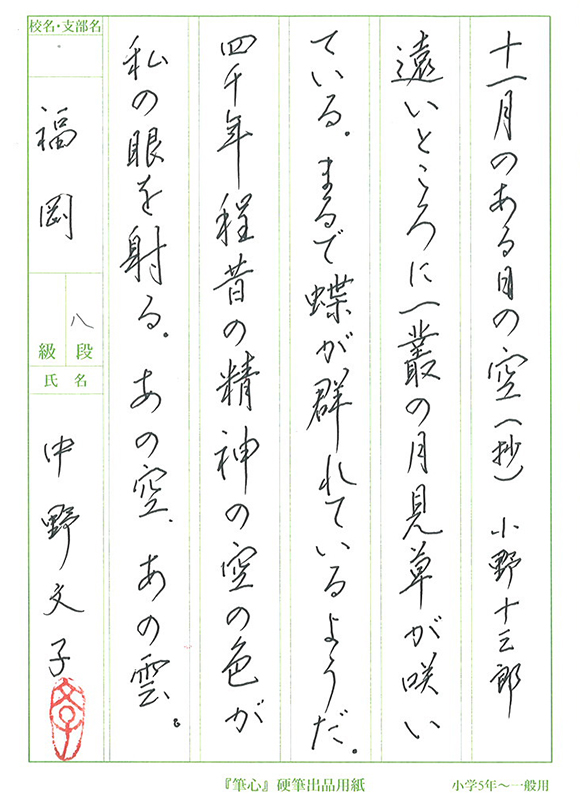 十一月のある日の空(抄) 小野十三郎
遠いところに一叢の月見草が咲い
ている。まるで蝶が群れているようだ。
四千年程昔の精神の空の色が
私の眼を射る。あの空、あの雲。
校名・支部名
福岡
八
級 段
氏 名
中野文子
『筆心』硬筆出品用紙
小学5年~一般用